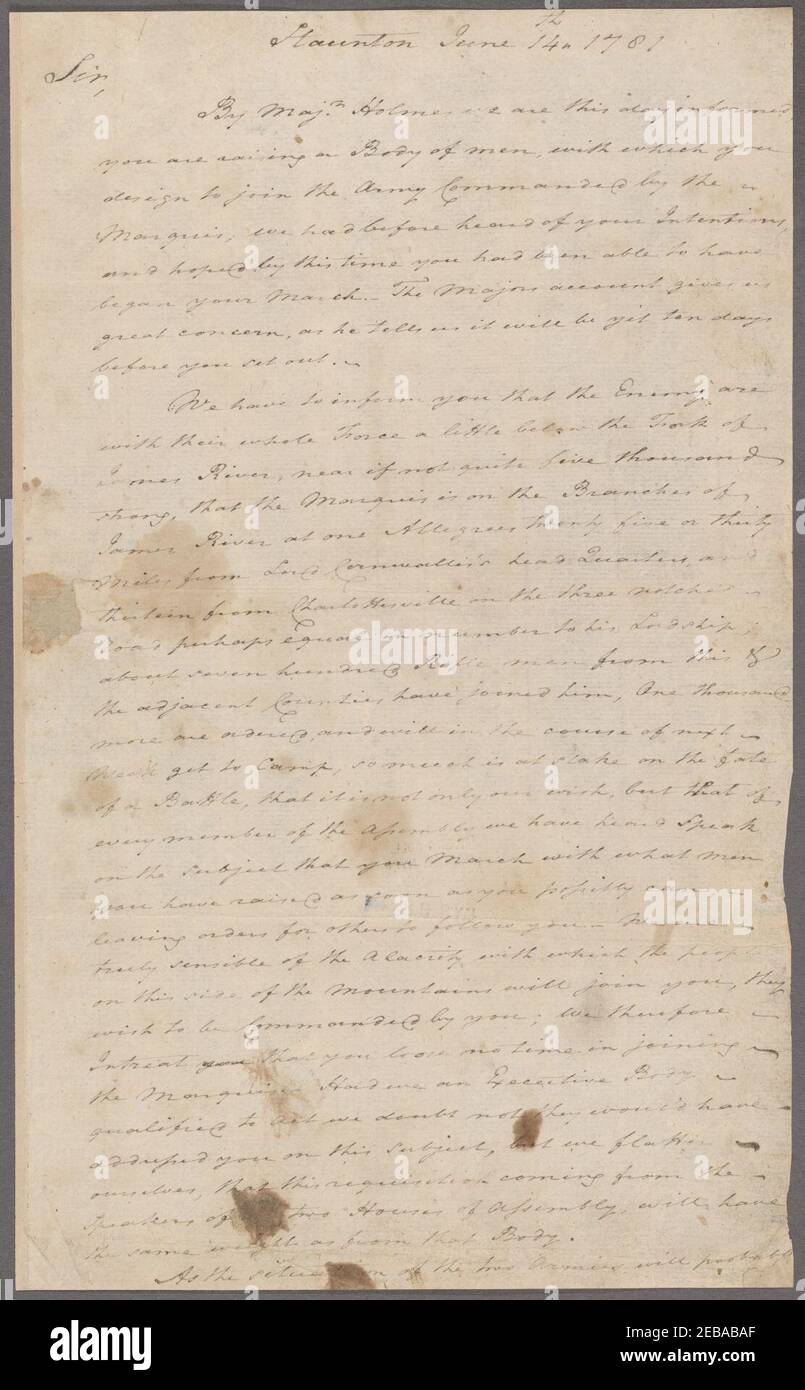 Staunton June 14th 1781
Sir,
By Majr. Holmes we are this day informed
you are raising a Body of men, with which you
design to join the Army Commanded by the
Marquis, we had before heard of your Intentions,
and hoped by this time you had been able to have
began your March. The Majors account gives us
great concern, as he tells us it will be yet ten days
before you set out.
We have to inform you that the Enemy are
with their whole Force a little below the Fork of
James River, near if not quite five thousand
strong, that the Marquis is on the Branches of
James River at one Allegrees twenty five or thirty
Miles from Lord Cornwallis's head Quarters, and
thirteen from Charlottesville on the three notched
road perhaps equal in number to his Lordship,
about seven hundred Rifle men from this &
the adjacent Counties have joined him, One thousand
more are ordered, and will in the course of next
Week get to Camp, so much is at stake on the fate
of a Battle, that it is not only our wish, but that of
every member of the Assembly we have heard Speak
on the subject that you March with what men
you have raised as soon as you possibly can
leaving orders for others to follow you
truly sensible of the Alacrity with which the people
on this side of the Mountains will join you, they
wish to be Commanded by you; We therefore
Intreat you that you loose no time in joining
the Marquis. Had we an Executive Body
qualified to Act we doubt not they would have
addressed you on this subject, but we flatter
ourselves, that this requisition coming from the
Speakers of the two Houses of Assembly, will have
the same weight as from that Body.
As the situation of the two Armies will probably
alamy
alamy
Image ID: 2EBABAF
www.alamy.com